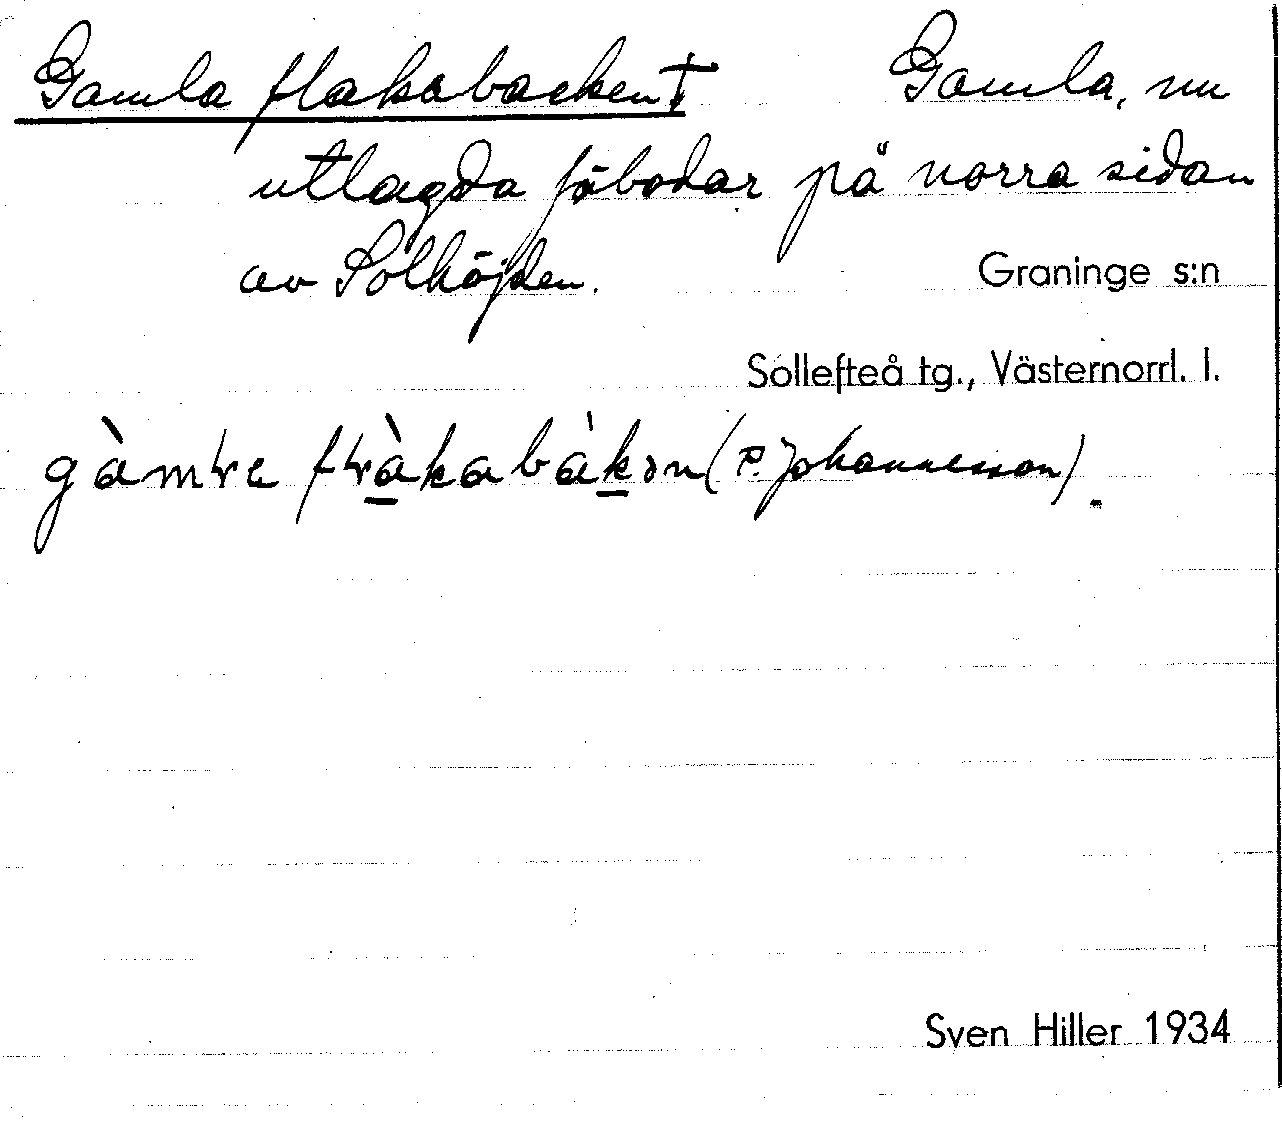 Gamla flakabacken † Gamla, nu
utlagda fäbodar på norra sidan
av Solhöjden.
Graninge s:n
Sollefteå tg., Västernorrl. l.
(P. Johannesson).
Sven Hiller 1934